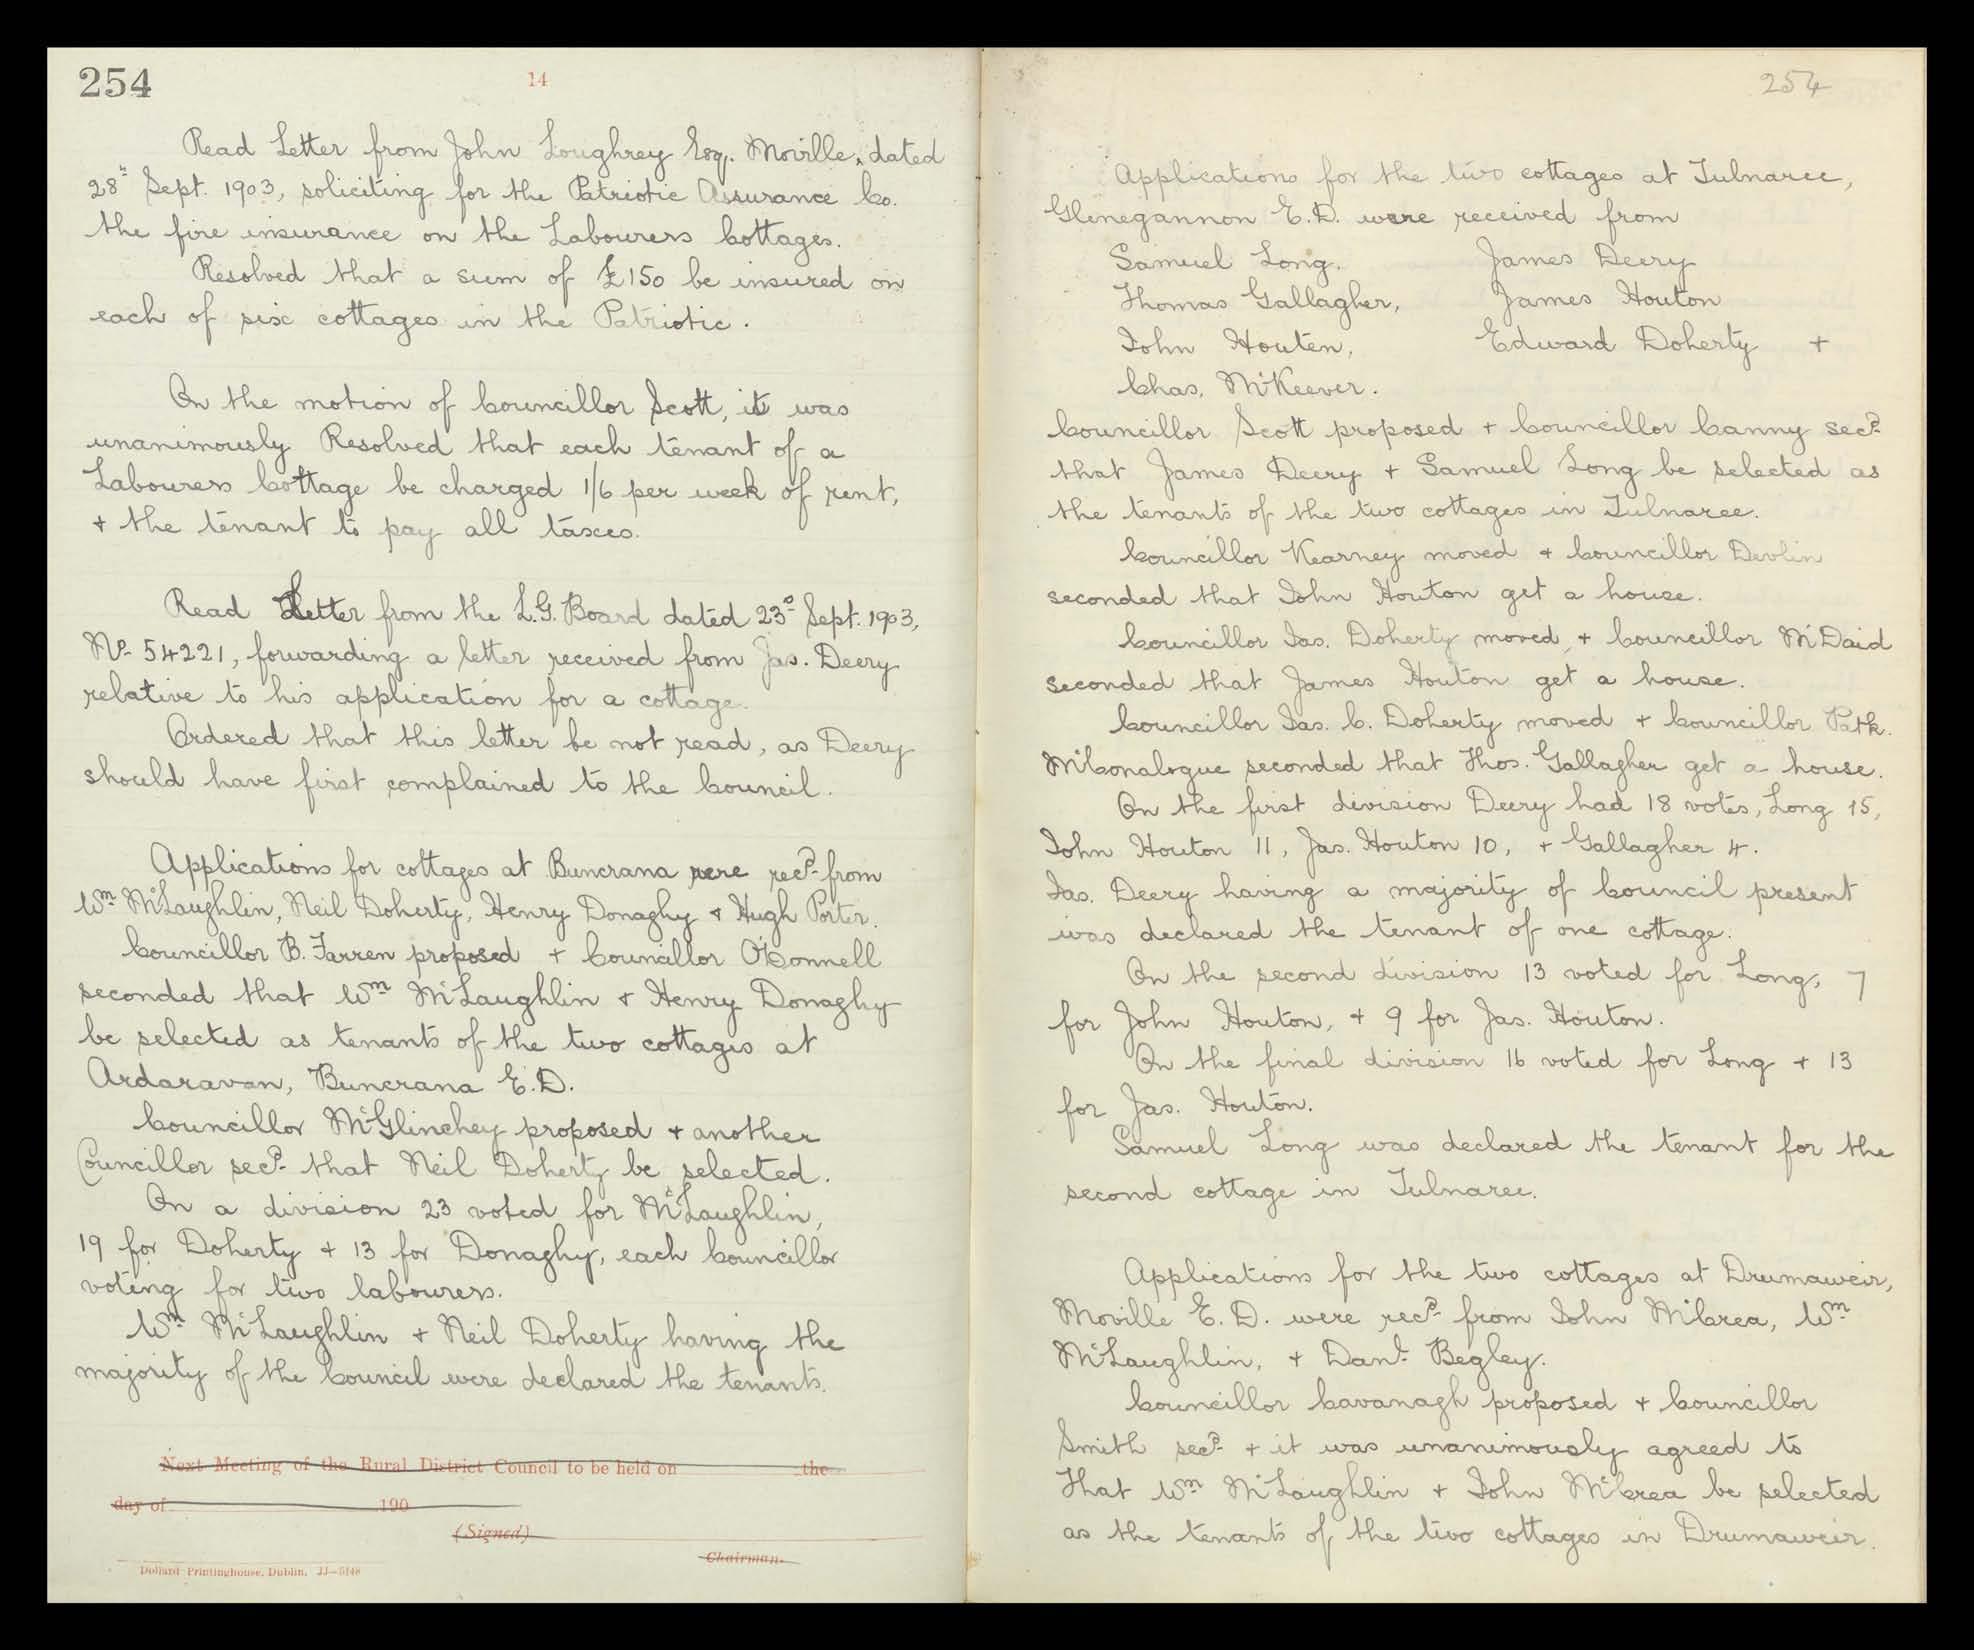 254
14
Read Letter from John Loughrey Esq. Moville, dated
28" Sept. 1903, soliciting for the Patriotic Assurance Co.
the fire insurance on the Labourers Cottages.
Resolved that a sum of £150 be insured on
each of six cottages in the Patriotic.
On the motion of Councillor Scott, it was
unanimously Resolved that each tenant of a
Labourers Cottage be charged 1/6 per week of rent,
+ the tenant to pay all taxes.
Read Letter from the L.G. Board dated 23º Sept. 1903,
Nº 54221, forwarding a letter received from Jas. Deery
relative to his application for a cottage.
Ordered that this letter be not read, as Deery
should have first complained to the Council.
Applications for cottages at Buncrana were recd from
Wm McLaughlin, Neil Doherty, Henry Donaghy & Hugh Porter.
Councillor B. Farren proposed + Councillor O'Connell
seconded that Wm McLaughlin & Henry Donaghy
be selected as tenants of the two cottages at
Ardaravan, Buncrana E.D.
Councillor McGlinchey proposed + another
Councillor secd that Neil Doherty be selected.
On a division 23 voted for McLaughlin,
19 for Doherty + 13 for Donaghy, each Councillor
voting for two labourers.
Wm McLaughlin + Neil Doherty having the
majority of the Council were declared the tenants.
Next Meeting of the Rural District Council to be held on the
day of 190
(Signed)
Chairman.
Dollard Printinghouse, Dublin. JJ—5148
254
Applications for the two cottages at Tulnaree,
Glenegannon E.D. were received from
Samuel Long. James Deery
Thomas Gallagher, James Houton
John Houten, Edward Doherty +
Chas. McKeever.
Councillor Scott proposed + Councillor Canny secd
that James Deery + Samuel Long be selected as
the tenants of the two cottages in Tulnaree.
Councillor Kearney moved + Councillor Devlin
seconded that John Houton get a house.
Councillor Jas. Doherty moved, + Councillor McDaid
seconded that James Houton get a house.
Councillor Jas. C. Doherty moved + Councillor Patk.
McConalogue seconded that Thos. Gallagher get a house.
On the first division Deery had 18 votes, Long 15,
John Houton 11, Jas. Houton 10, + Gallagher 4.
Jas. Deery having a majority of Council present
was declared the tenant of one cottage.
On the second division 13 voted for Long, 7
for John Houton, + 9 for Jas. Houton.
On the final division 16 voted for Long + 13
for Jas. Houton.
Samuel Long was declared the tenant for the
second cottage in Tulnaree.
Applications for the two cottages at Drumaweir,
Moville E.D. were recd from John McCrea, Wm
McLaughlin, + Danl. Begley.
Councillor Cavanagh proposed + Councillor
Smith secd + it was unanimously agreed to
That Wm McLaughlin + John McCrea be selected
as the tenants of the two cottages in Drumaweir.